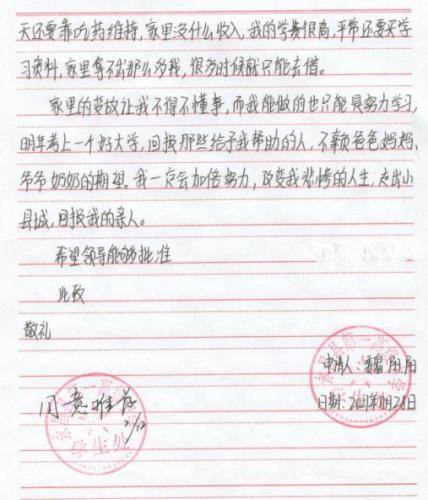 天还要靠吃药维持，家里没什么收入，我的学费很高，平常还要买学
习资料，家里拿不出那么多钱，很多时候就只能去借。
家里的变故让我不得不懂事，而我能做的也只能是努力学习，
明年考上一个好大学，回报那些给予我帮助的人，不辜负爸爸妈妈、
爷爷奶奶的期望。我一定会加倍努力，改变我悲惨的人生，走出小
县城，回报我的亲人。
希望领导能够批准
此致
敬礼
申请人：
阳阳
同意推荐
学生处
日期：2021年
28日